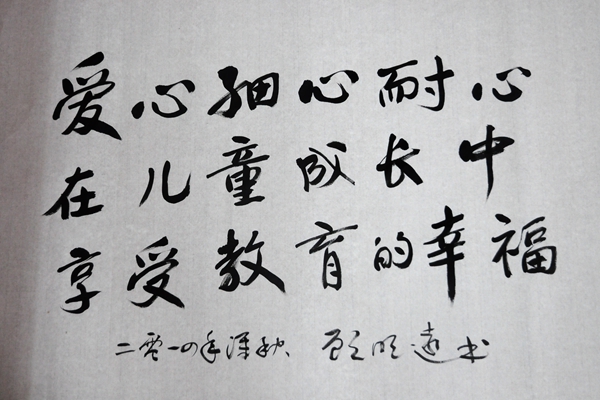 爱心细心耐心
在儿童成长中
享受教育的幸福
二零一四年深秋、顾明远书